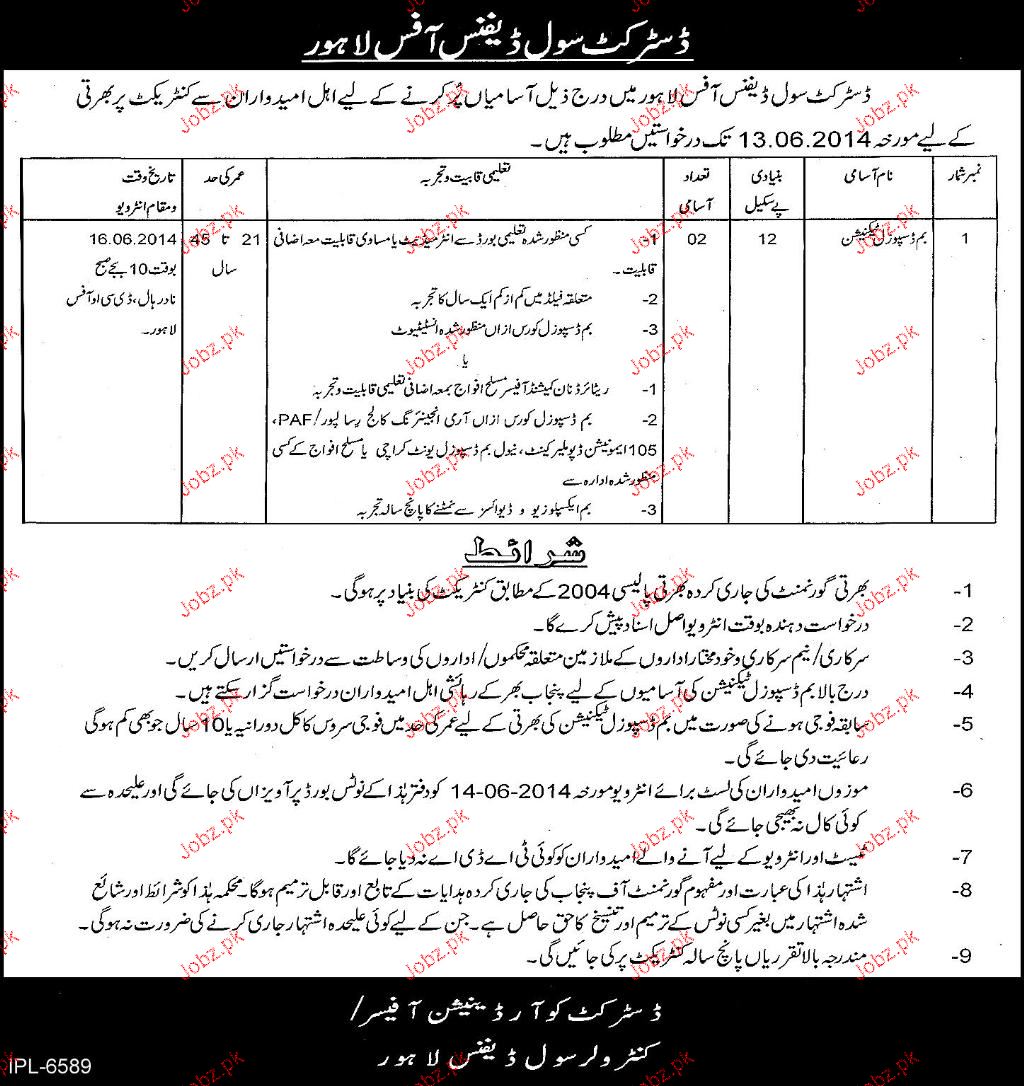 ڈسٹرکٹ سول ڈیفنس آفس لاہور
ڈسٹرکٹ سول ڈیفنس آفس لاہور میں درج ذیل آسامیاں پُر کرنے کے لیے اہل امیدواران سے کنٹریکٹ پر بھرتی
کے لیے مورخہ 13.06.2014 تک درخواستیں مطلوب ہیں۔
نمبر شمار
نام آسامی
بنیادی
پے سکیل
تعداد
آسامی
تعلیمی قابلیت و تجربہ
عمر کی حد
تاریخ وقت
و مقام انٹرویو
1
بم ڈسپوزل ٹیکنیشن
12
02
1- کسی منظور شدہ تعلیمی بورڈ سے انٹرمیڈیٹ یا مساوی قابلیت معہ اضافی
قابلیت۔
2- متعلقہ فیلڈ میں کم از کم ایک سال کا تجربہ
3- بم ڈسپوزل کورس ازاں منظور شدہ انسٹیٹیوٹ
یا
1- ریٹائرڈ نان کمیشنڈ آفیسر مسلح افواج بمعہ اضافی تعلیمی قابلیت و تجربہ
2- بم ڈسپوزل کورس ازاں آرمی انجینئرنگ کالج رسالپور/PAF،
105 ایمونیشن ڈپو ملیر کینٹ، نیول بم ڈسپوزل یونٹ کراچی یا مسلح افواج کے کسی
منظور شدہ ادارہ سے
3- بم ایکسپلوزیو و ڈیوائسز سے نمٹنے کا پانچ سالہ تجربہ
21 تا 45
سال
16.06.2014
بوقت 10 بجے صبح
نادر ہال، ڈی سی او آفس
لاہور۔
شرائط
1- بھرتی گورنمنٹ کی جاری کردہ بھرتی پالیسی 2004 کے مطابق کنٹریکٹ کی بنیاد پر ہوگی۔
2- درخواست دہندہ بوقت انٹرویو اصل اسناد پیش کرے گا۔
3- سرکاری/نیم سرکاری و خود مختار اداروں کے ملازمین متعلقہ محکموں/اداروں کی وساطت سے درخواستیں ارسال کریں۔
4- درج بالا بم ڈسپوزل ٹیکنیشن کی آسامیوں کے لیے پنجاب بھر کے رہائشی اہل امیدواران درخواست گزار سکتے ہیں۔
5- سابقہ فوجی ہونے کی صورت میں بم ڈسپوزل ٹیکنیشن کی بھرتی کے لیے عمر کی حد میں فوجی سروس کا کل دورانیہ یا 10 سال جو بھی کم ہوگی
رعائیت دی جائے گی۔
6- موزوں امیدواران کی لسٹ برائے انٹرویو مورخہ 14-06-2014 کو دفتر ہذا کے نوٹس بورڈ پر آویزاں کی جائے گی اور علیحدہ سے
کوئی کال نہ بھیجی جائے گی۔
7- ٹیسٹ اور انٹرویو کے لیے آنے والے امیدواران کو کوئی ٹی اے ڈی اے نہ دیا جائے گا۔
8- اشتہار ہذا کی عبارت اور مفہوم گورنمنٹ آف پنجاب کی جاری کردہ ہدایات کے تابع اور قابل ترمیم ہوگا۔ محکمہ ہذا کو شرائط اور شائع
شدہ اشتہار میں بغیر کسی نوٹس کے ترمیم اور تنسیخ کا حق حاصل ہے۔ جن کے لیے کوئی علیحدہ اشتہار جاری کرنے کی ضرورت نہ ہوگی۔
9- مندرجہ بالا تقرریاں پانچ سالہ کنٹریکٹ پر کی جائیں گی۔
ڈسٹرکٹ کوآرڈینیشن آفیسر/
کنٹرولر سول ڈیفنس لاہور
IPL-6589
Jobz.pk